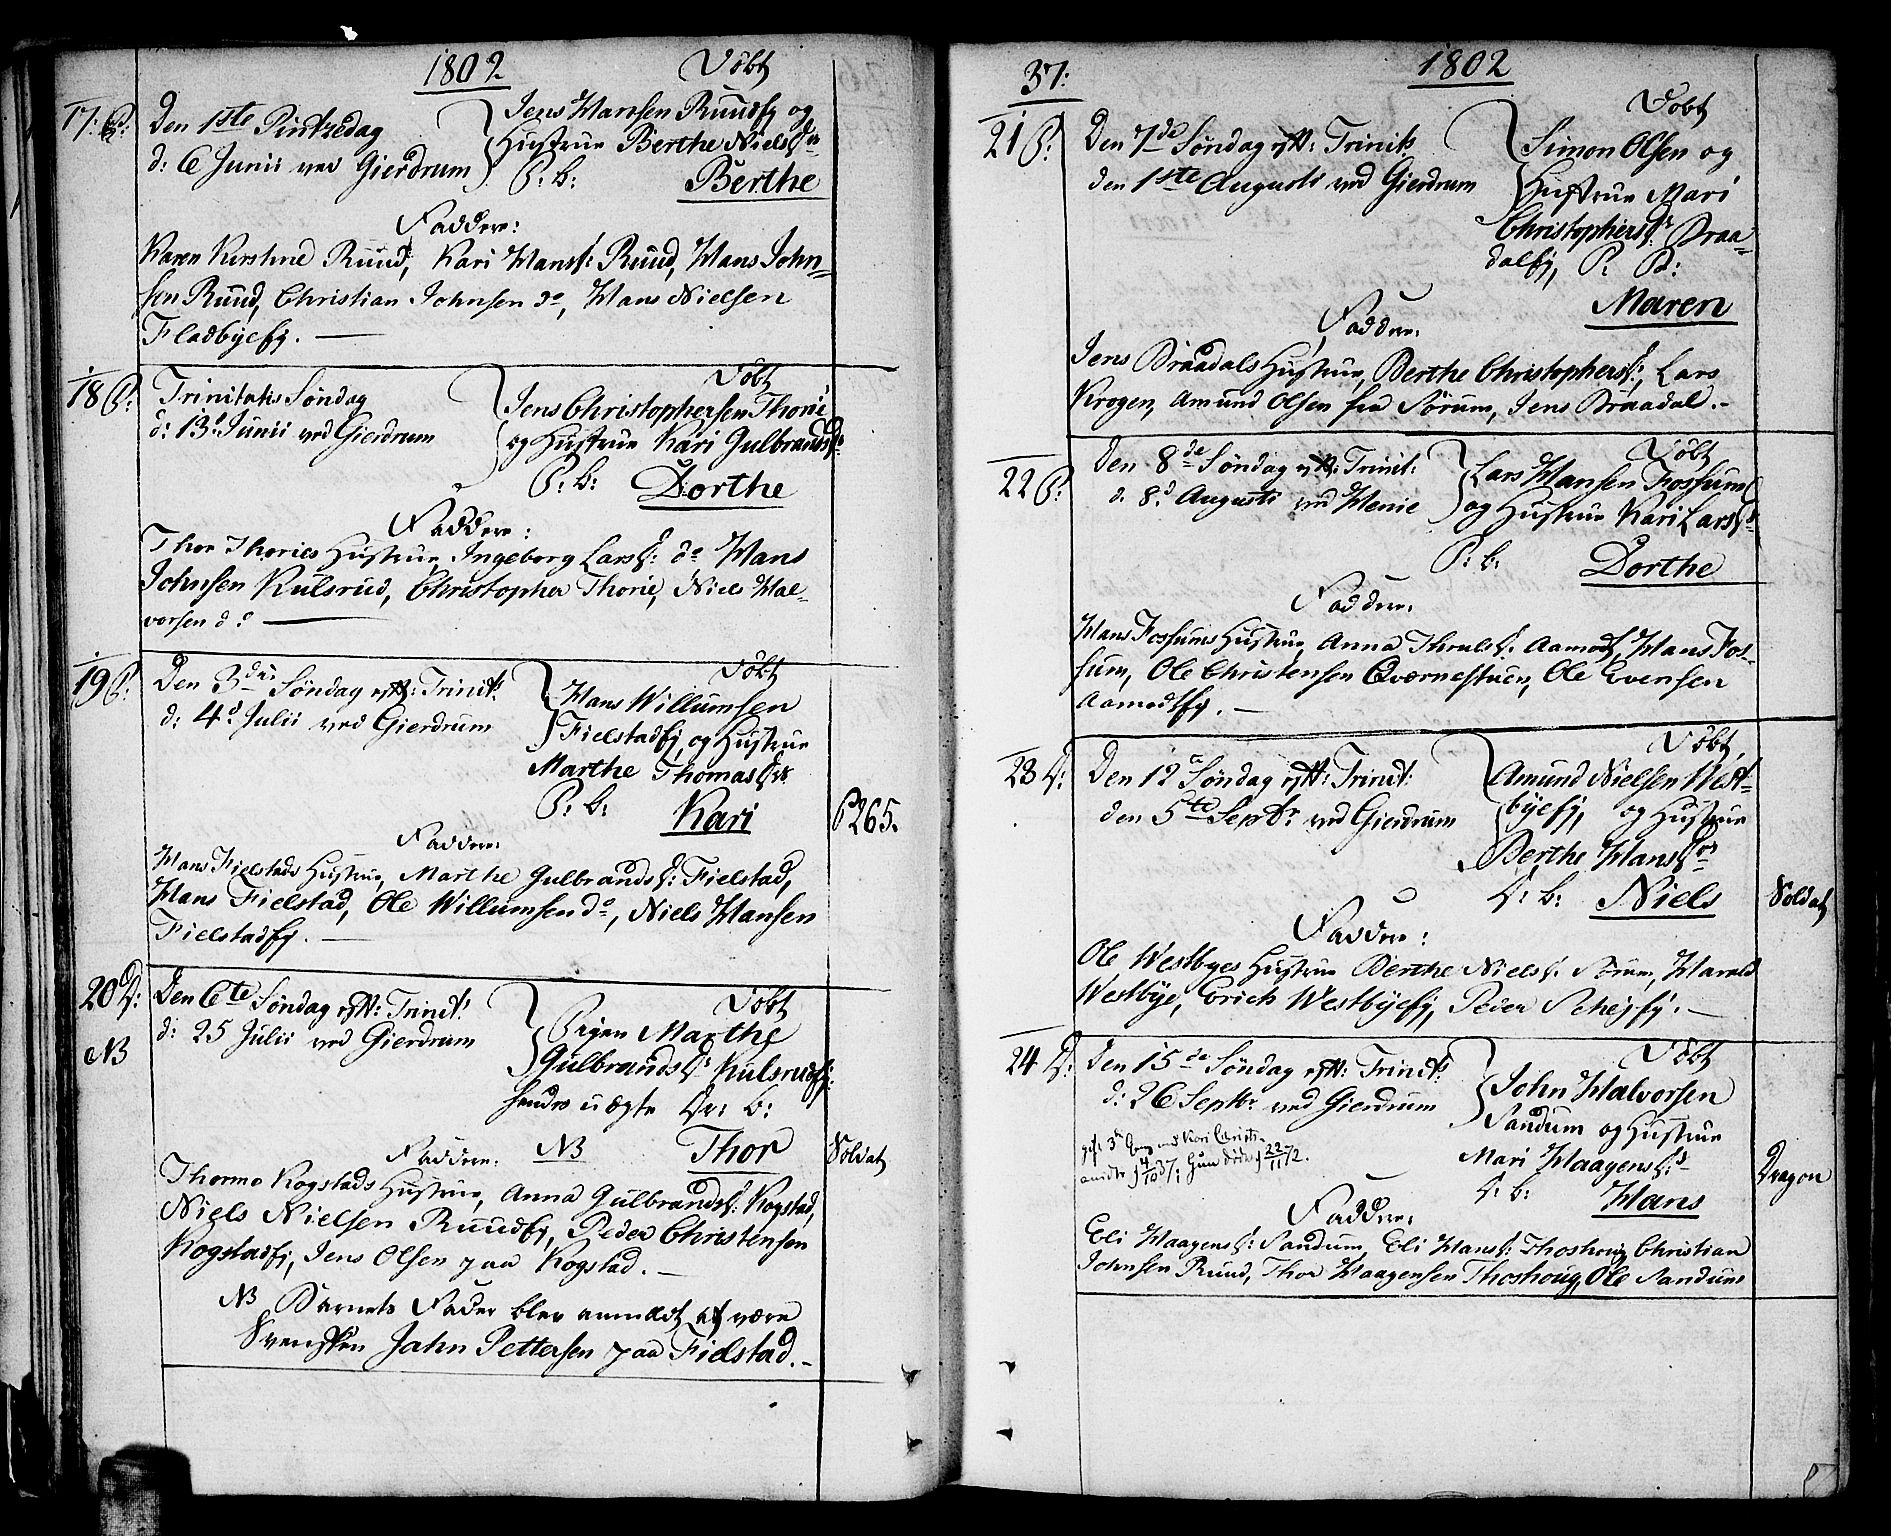 1802
Døbt
17: P:
Den 1ste Pintzedag
d: 6 Junii ved Gierdrum
Jens Hansen Ruudfj og
Hustrue Berthe Nielsdr
P: b:
Berthe
Faddere:
Karen Kirstine Ruud, Kari Hansd: Ruud, Hans John-
sen Ruud, Christian Johnsen do, Hans Nielsen
Fladbyefj.
18 P:
Trinitatis Søndag
d: 13d Junii ved Gierdrum
Døbt
Jens Christophersen Thorie
og Hustrue Kari Gulbrandsdr
P: b: Dorthe
Faddere:
Thor Thories Hustrue, Ingeborg Larsd: do, Hans
Johnsen Kulsrud, Christopher Thorie, Niels Hal-
vorsen do
19 P:
Den 3die Søndag eftr: Trinit:
d: 4d Julii ved Gierdrum
Døbt
Hans Willumsen
Fielstadfj, og Hustrue
Marthe Thomasdr
P: b: Kari
P265.
Faddere:
Hans Fielstads Hustrue, Marthe Gulbrandsd: Fielstad,
Hans Fielstad, Ole Willumsen do, Niels Hansen
Fielstadfj.
20 D:
NB
Den 6te Søndag eftr: Trinit:
d: 25 Julii ved Gierdrum
Døbt
Pigen Marthe
Gulbrandsdr Kulsrudfj:
hendes uægte Dr: b:
Faddere: NB Thor
Soldat
Thormo Kogstads Hustrue, Anna Gulbrandsd: Kogstad,
Niels Nielsen Ruudfj, Peder Christensen
Kogstadfj, Jens Olsen paa Kogstad.
NB Barnets Fader blev anmeldt at være
Svensken Jahn Pettersen paa Fielstad.
37:
1802
21 P:
Den 7de Søndag eftr: Trinits
den 1ste Augusti ved Gierdrum
Døbt
Simon Olsen og
Hustrue Mari
Christophersdr Braa-
dalfj, P: B:
Maren
Faddere:
Jens Braadals Hustrue, Berthe Christophersd:, Lars
Krogen, Amund Olsen fra Sørum, Jens Braadal.
22 P:
Den 8de Søndag eftr: Trinit:
d: 8d Augusti ved Henie
Døbt
Lars Hansen Fossum
og Hustrue Kari Larsdr
P: b: Dorthe
Faddere:
Hans Fossums Hustrue, Anna Thrulsd: Aamodt, Hans Fos-
sum, Ole Christensen Qværnestuen, Ole Evensen
Aamodtfj.
23 D:
Den 12te Søndag eftr: Trinit:
den 5te Septbr ved Gierdrum
Døbt
Amund Nielsen Vest-
byefj, og Hustrue
Berthe Hansdr
D: b: Niels
Soldat
Faddere:
Ole Westbyes Hustrue Berthe Nielsd: Sørum, Harald
Westbye, Erich Westbyefj, Peder
24 D:
Den 15de Søndag eftr: Trinit:
d: 26 Septbr ved Gierdrum
Døbt
John Halvorsen
Sandum og Hustrue
Mari Haagensd:
D: b: Hans
Dragon
gift 3de Gang med Kari Christi-
ansdtr 4/10 37; hun døde 22/11 72.
Faddere:
Eli Haagensd: Sandum, Eli Hansd: Thoshoug, Christian
Johnsen Ruud, Thor Haagensen Thoshoug, Ole Sandum